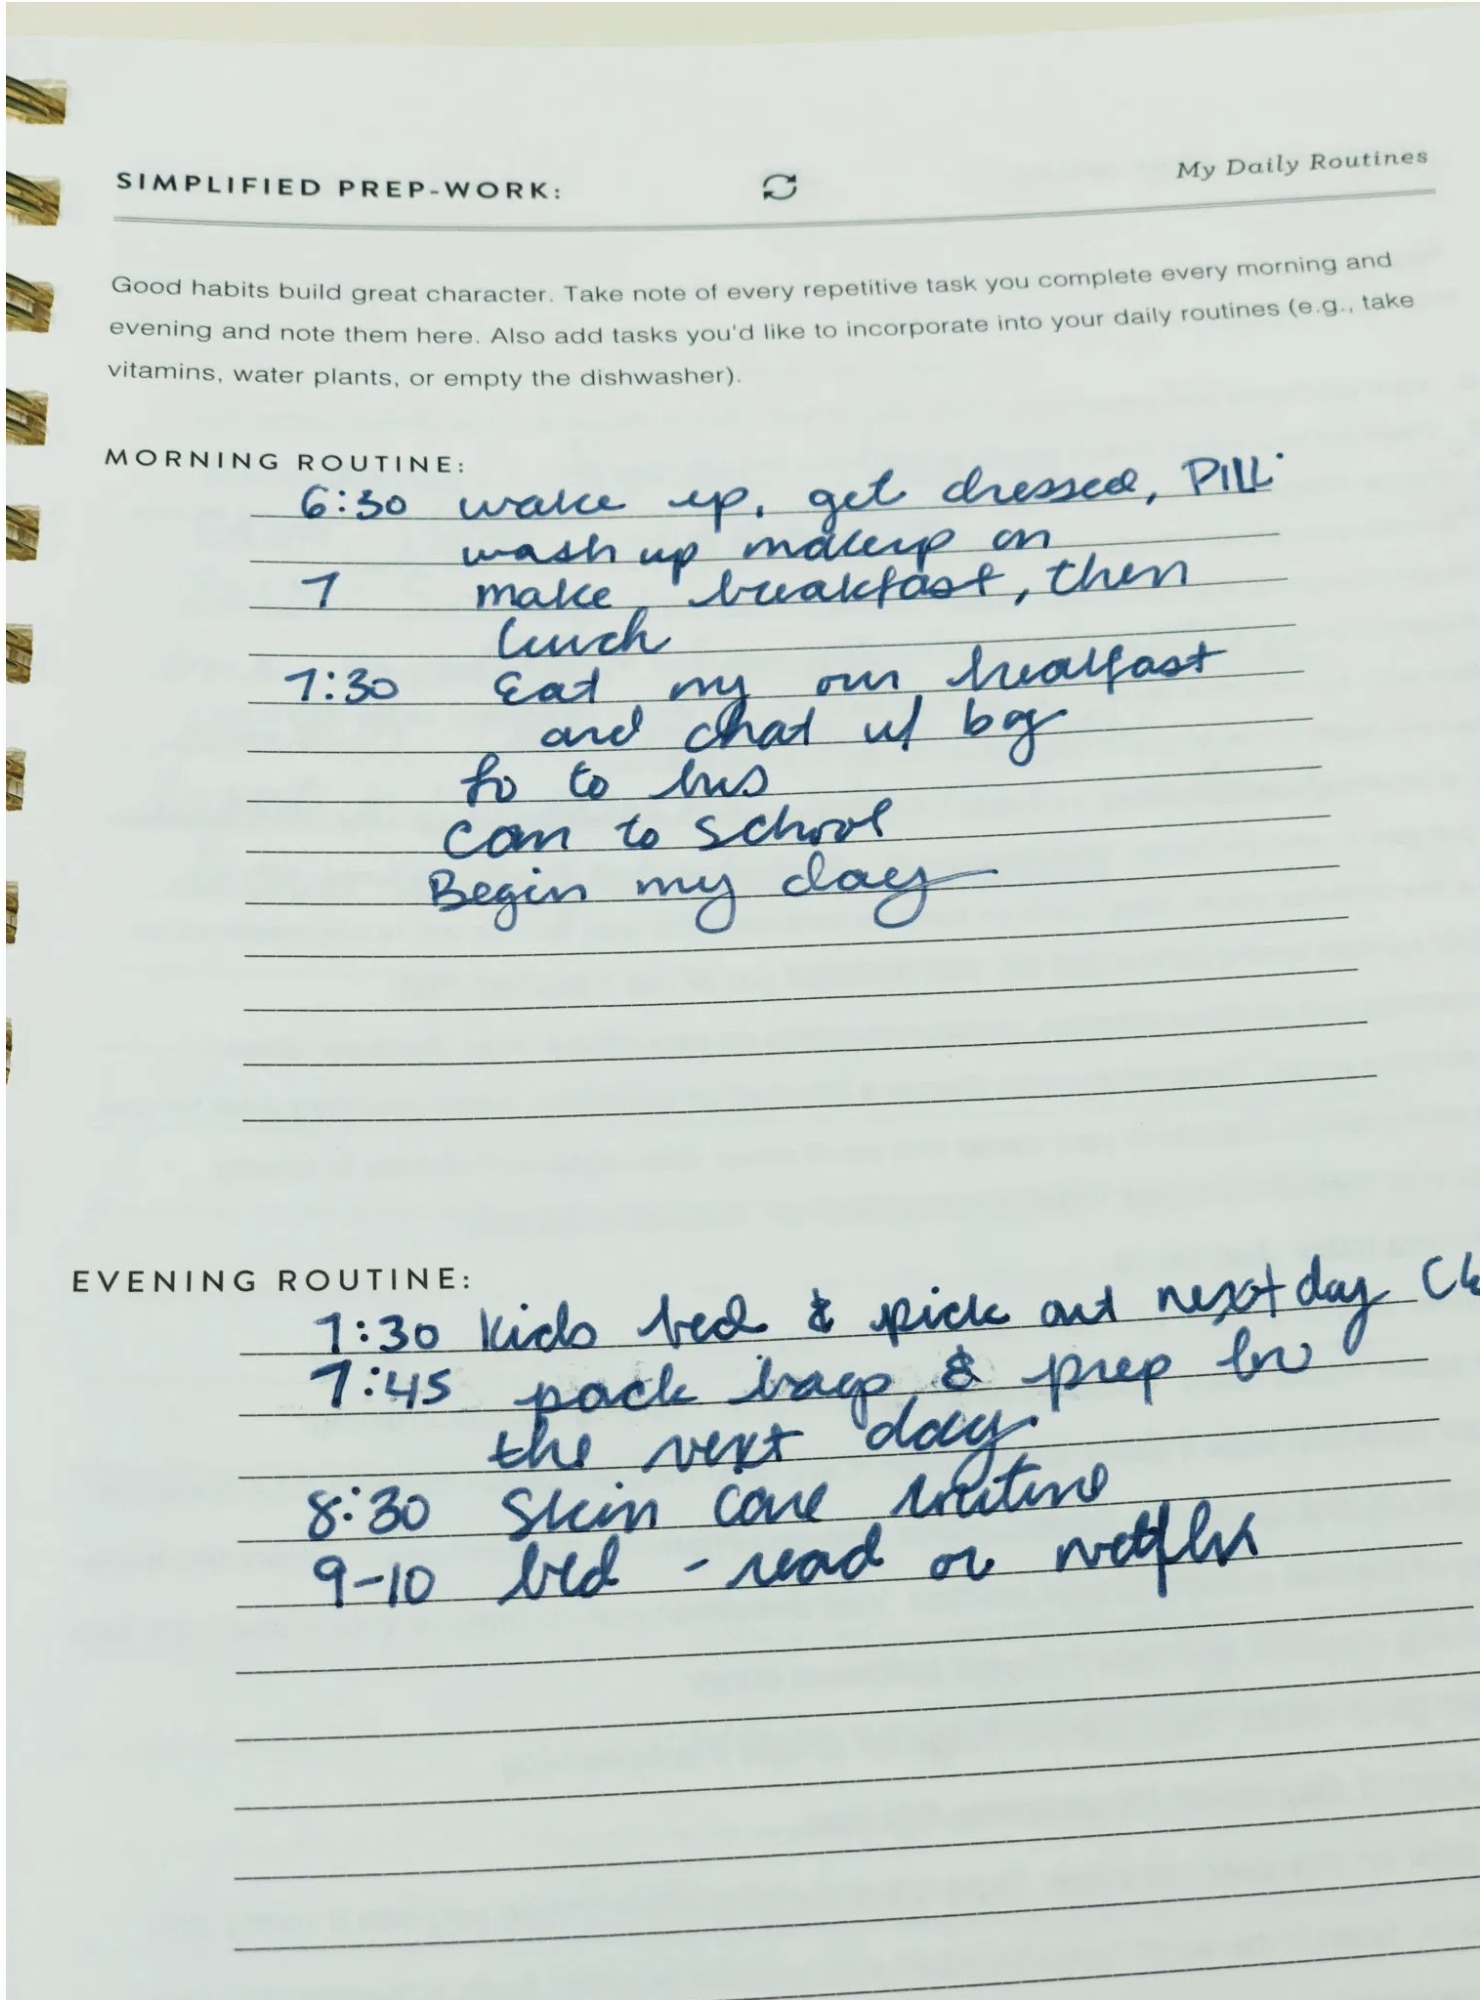 SIMPLIFIED PREP-WORK:
My Daily Routines
Good habits build great character. Take note of every repetitive task you complete every morning and
evening and note them here. Also add tasks you'd like to incorporate into your daily routines (e.g., take
vitamins, water plants, or empty the dishwasher).
MORNING ROUTINE:
6:30 wake up, get dressed, PILL
wash up makeup on
7 make breakfast, then
lunch
7:30 Eat my own breakfast
and chat w/
to bus
to school
Begin my day
EVENING ROUTINE:
7:30 kids bed & pick out next day
7:45 pack bags & prep for
the next day.
8:30 Skin care routine
9-10 bed - read or netflix